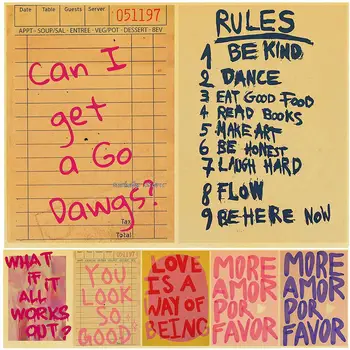 Date Table Guests Server 051197
APPT - SOUP/SAL - ENTREE - VEG/POT - DESSERT - BEV
Can I
get
a Go
Dawgs?
Tax
Total
RULES
1 BE KIND
2 DANCE
3 EAT GOOD FOOD
4 READ BOOKS
5 MAKE ART
6 BE HONEST
7 LAUGH HARD
8 FLOW
9 BE HERE NOW
WHAT
IF IT
ALL
WORKS
OUT?
051197
YOU
LOOK
SO
GOOD
LOVE
IS A
WAY OF
BEING
MORE
AMOR
POR
FAVOR
MORE
AMOR
POR
FAVOR